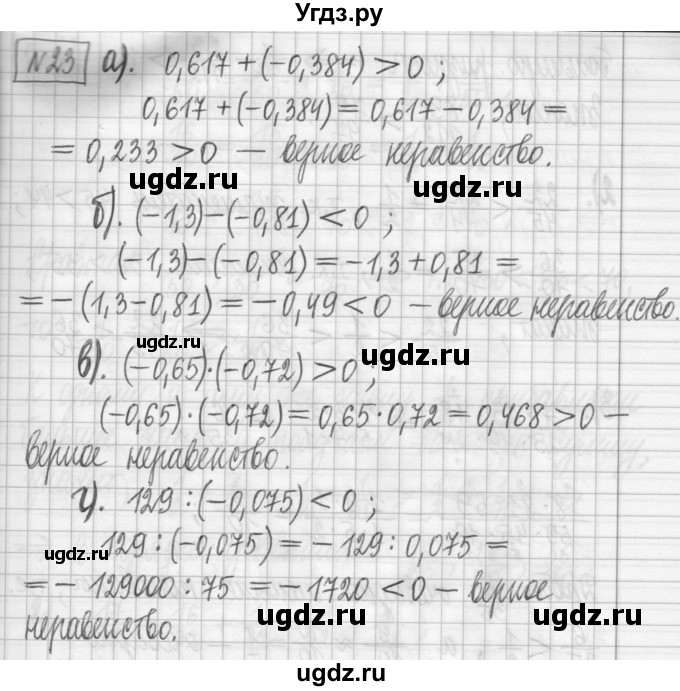 Угдз.ру
№23 а). 0,617+(-0,384)>0 ;
0,617+(-0,384)= 0,617-0,384=
= 0,233>0 — верное неравенство.
ugdz.ru
б). (-1,3)-(-0,81)<0 ;
(-1,3)-(-0,81)=-1,3+0,81 =
=-(1,3-0,81)=-0,49<0 - верное неравенство.
ugdz.ru ugdz.ru
в). (-0,65)·(-0,72)>0 ;
(-0,65)·(-0,72)=0,65·0,72=0,468>0 —
верное неравенство.
ugdz.ru
г). 129:(-0,075)<0 ;
129:(-0,075)=-129:0,075=
ugdz.ru
=-129000:75 =-1720<0 - верное
неравенство.
ugdz.ru ugdz.ru
ugdz.ru